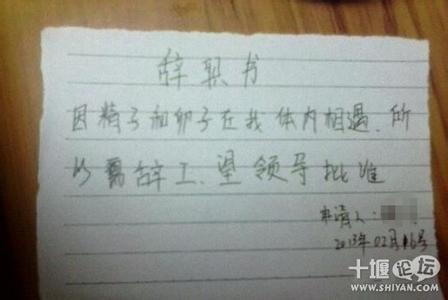 辞职书
因精子和卵子在我体内相遇.所
以需辞工.望领导批准
申请人:
2013年02月16号
十堰论坛
WWW.SHIYAN.COM